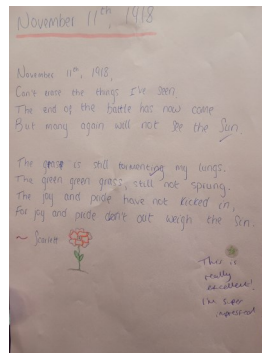 November 11th, 1918
November 11th, 1918,
Can't erase the things I've seen.
The end of the battle has now come
But many again will not see the Sun.
The is still tormenting my lungs.
The green green grass, still not sprung.
The joy and pride have not kicked in,
For joy and pride don't out weigh the Sin.
~
This is
really
excellent!
I'm super
impressed